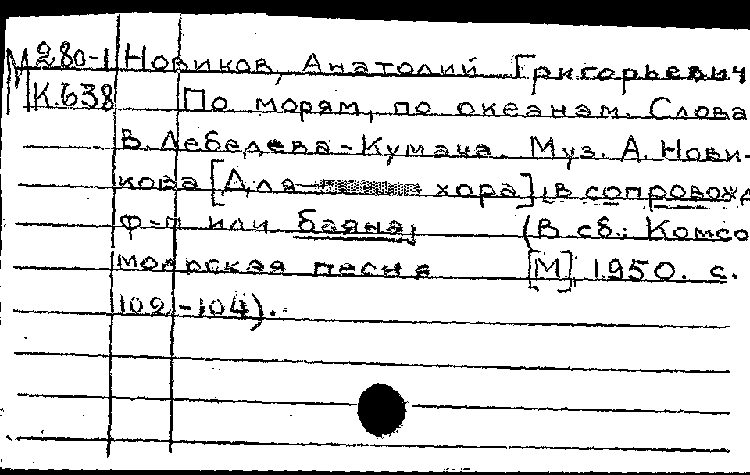 М280-1 Новиков, Анатолий Григорьевич
К.638 По морям, по океанам. Слова
В. Лебедева-Кумача. Муз. А. Нови-
кова [Для хора], в сопровожд
ф-п или баяна;   (В сб.: Комсо
молрская песня   [М], 1950. с.
102-104).